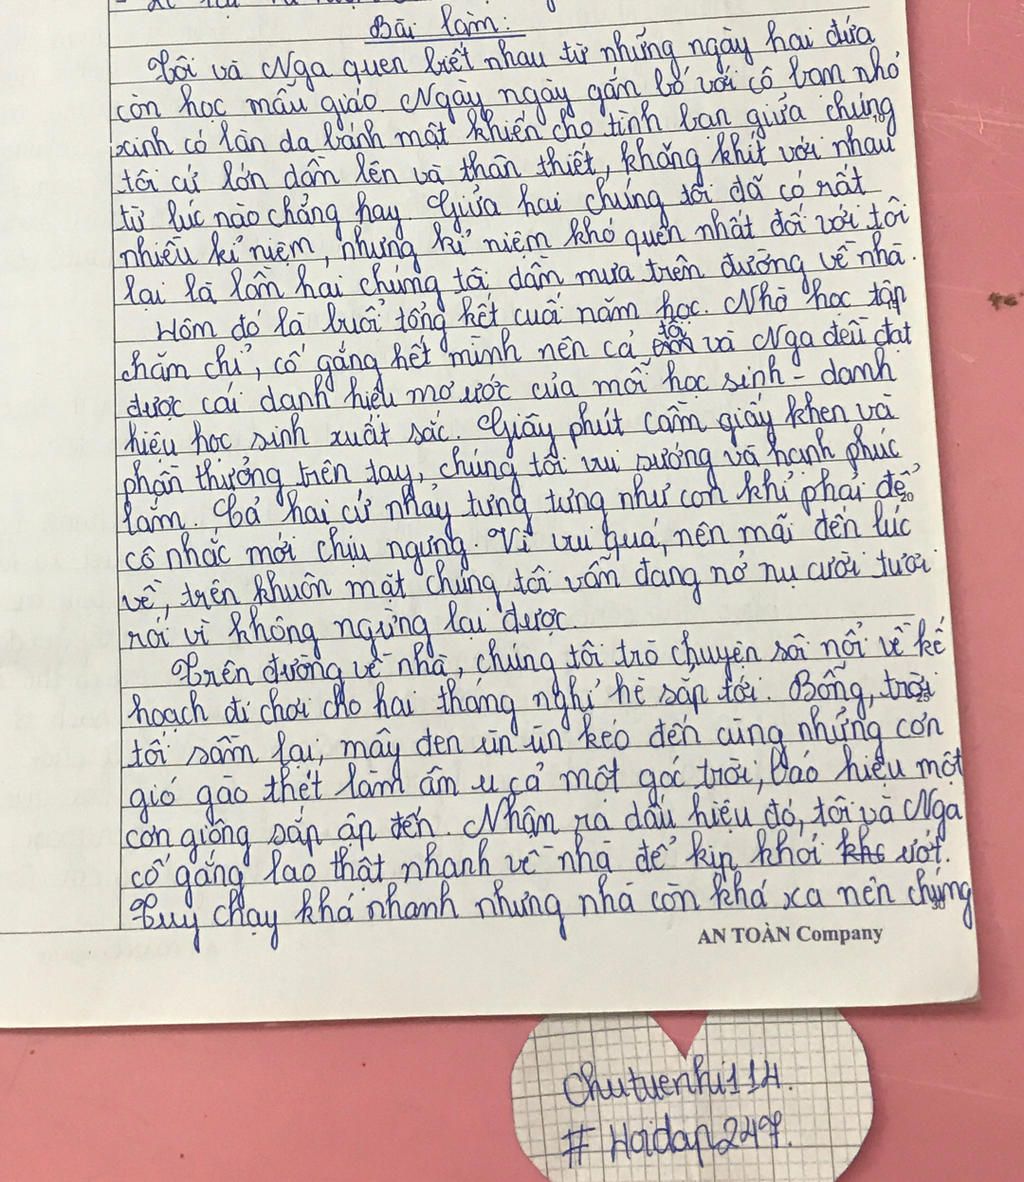 Bài làm:
Tôi và Nga quen biết nhau từ những ngày hai đứa
còn học mẫu giáo. Ngày ngày gắn bó với cô bạn nhỏ
xinh có làn da bánh mật khiến cho tình bạn giữa chúng
tôi cứ lớn dần lên và thân thiết, khăng khít với nhau
từ lúc nào chẳng hay. Giữa hai chúng tôi đã có rất
nhiều kỉ niệm, nhưng kỉ niệm khó quên nhất đối với tôi
lại là lần hai chúng tôi dầm mưa trên đường về nhà.
Hôm đó là buổi tổng kết cuối năm học. Nhờ học tập
chăm chỉ, cố gắng hết mình nên cả tôi và Nga đều đạt
được cái danh hiệu mơ ước của mỗi học sinh - danh
hiệu học sinh xuất sắc. Giây phút cầm giấy khen và
phần thưởng trên tay, chúng tôi vui sướng và hạnh phúc
lắm. Cả hai cứ nhảy tưng tưng như con khỉ phải để
cô nhắc mới chịu ngưng. Vì vui quá, nên mãi đến lúc
về, trên khuôn mặt chúng tôi vẫn đang nở nụ cười tươi
rói vì không ngừng lại được.
Trên đường về nhà, chúng tôi trò chuyện sôi nổi về kế
hoạch đi chơi cho hai tháng nghỉ hè sắp tới. Bỗng, trời
tối sầm lại, mây đen ùn ùn kéo đến cùng những cơn
gió gào thét làm âm u cả một góc trời, báo hiệu một
cơn giông sắp ập đến. Nhận ra dấu hiệu đó, tôi và Nga
cố gắng lao thật nhanh về nhà để kịp khỏi ướt.
Tuy chạy khá nhanh nhưng nhà còn khá xa nên chúng
AN TOÀN Company
Chutuenhi114.
# Hoidap247.